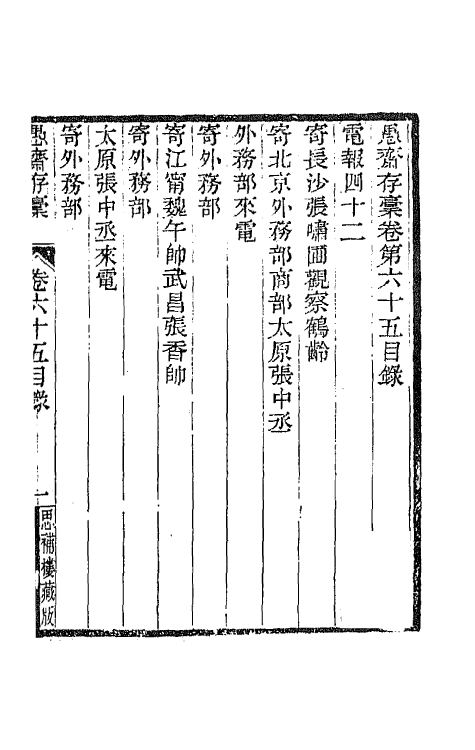 愚齋存稾卷第六十五目錄
電報四十二
寄長沙張嘯圃觀察鶴齡
寄北京外務部商部太原張中丞
外務部來電
寄外務部
寄江甯魏午帥武昌張香帥
寄外務部
太原張中丞來電
寄外務部
愚齋存稾
卷六十五目錄
一
思補樓藏版